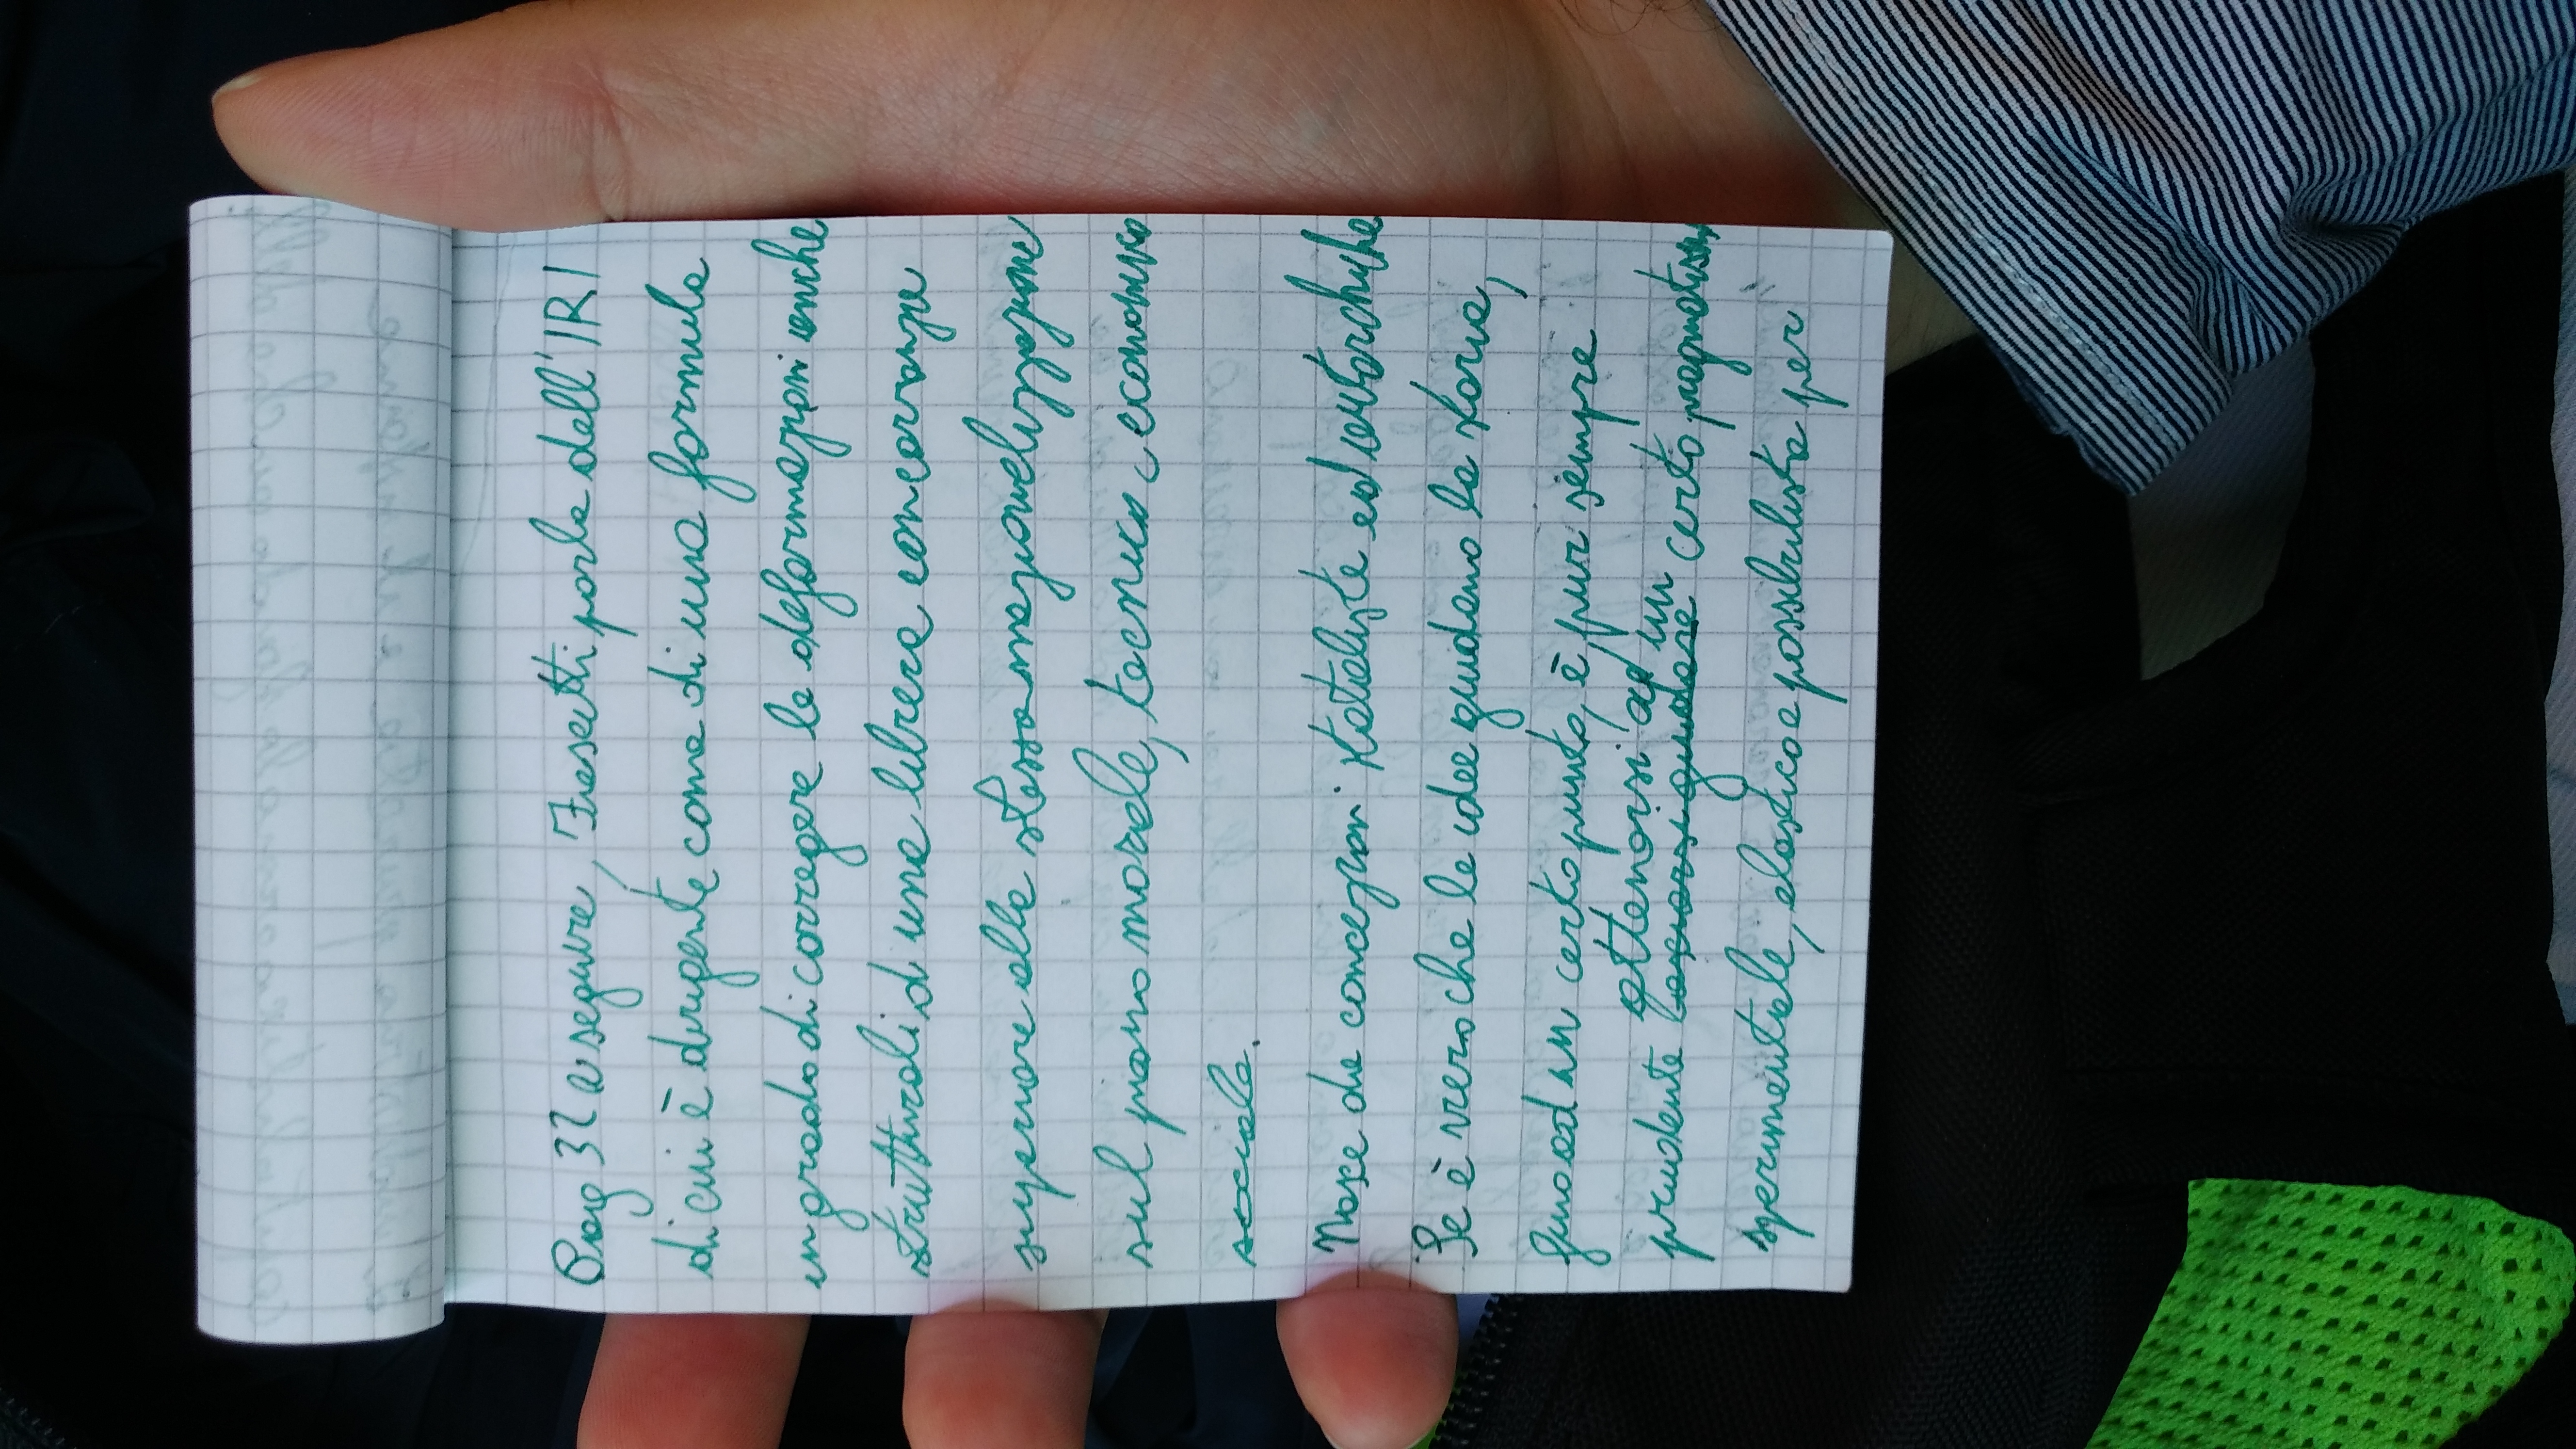 Pag 32 a segure, Fusetti parla dell'IRI
di cui è dirigente come di una formula
in grado di corregere le deformazioni anche
strutturali, di una libera concorranza
superiore alla stessa nazionalizzazione
sul piano morale, tecnico, economico
sociale.
Nasce da concezioni stataliste ed autarchiche
Se è vero che le idee guidano la storia,
fino ad un certo punto, è pur sempre
attenersi ad un
prudente lasciarsi guidare certo pragmatismo
sperimentale, elastico e possibilista per